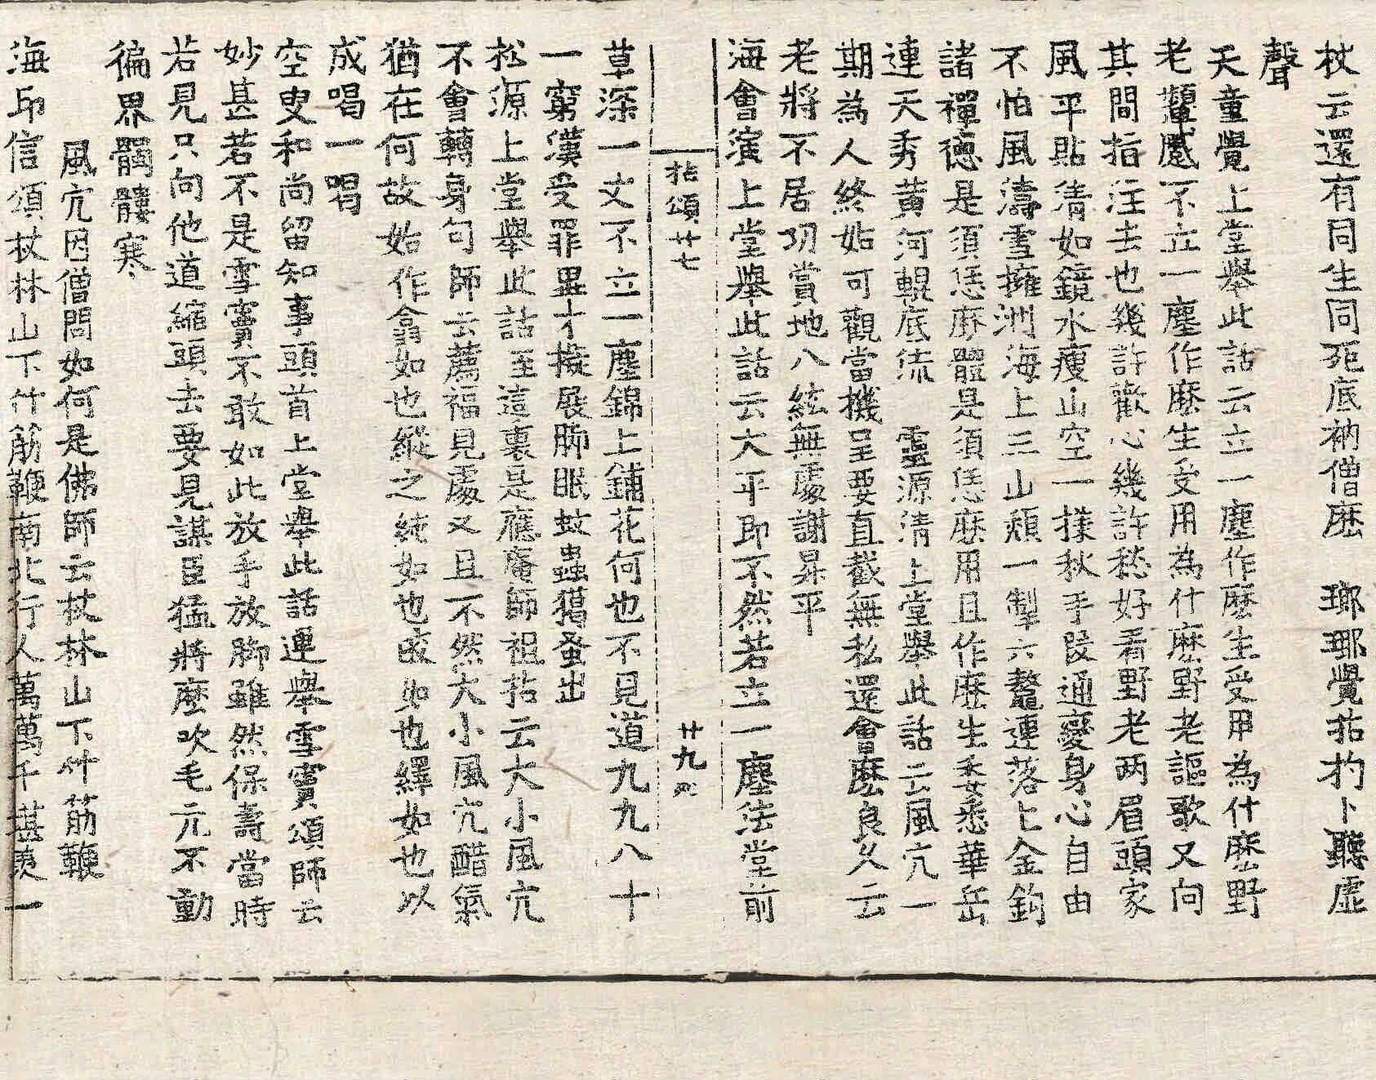 杖云還有同生同死底衲僧麽　瑯瑘覺拈杓卜聽虛
聲
天童覺上堂擧此話云立一塵作麽生受用為什麽野
老顰蹙不立一塵作麽生受用為什麽野老謳歌又向
其間指注去也幾許歡心幾許愁好看野老两眉頭家
風平貼清如鏡水瘦山空一㨾秋手段通變身心自由
不怕風濤雪擁洲海上三山頰一掣六鼇連落上金鉤
諸禪德是須恁麽體是須恁麽用且作麽生委悉華岳
連天秀黃河輥底流　靈源清上堂擧此話云風穴一
期為人終始可觀當機呈要直截無私還會麽良久云
老將不居功賞地八紘無處謝昇平
海會演上堂擧此話云大平即不然若立一塵法堂前
拈頌廿七　廿九
草深一丈不立一塵錦上鋪花何也不見道九九八十
一窮漢受罪畢才擬展脚眠蚊蟲獦蚤出
松源上堂擧此話至這裏是應庵師祖拈云大小風穴
不會轉身句師云薦福見處又且不然大小風穴醋氣
猶在何故始作翕如也縱之純如也皦如也繹如也以
成喝一喝
空叟和尚留知事頭首上堂擧此話連擧雪竇頌師云
妙甚若不是雪竇不敢如此放手放脚雖然保壽當時
若見只向他道縮頭去要見謀臣猛將麽吹毛元不動
徧界髑髏寒
風穴因僧問如何是佛師云杖林山下竹筋鞭
海印信頌杖林山下竹筋鞭南北行人萬萬千堪羨一